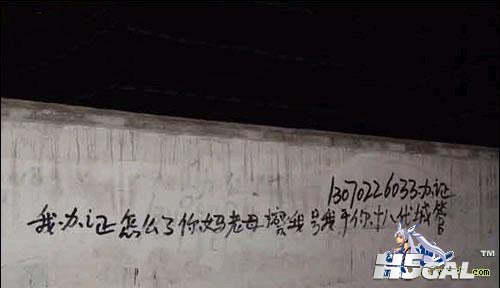 13070226033办证
我办证怎么了你妈老母擦我号我干你十八代城管
HSGAL™